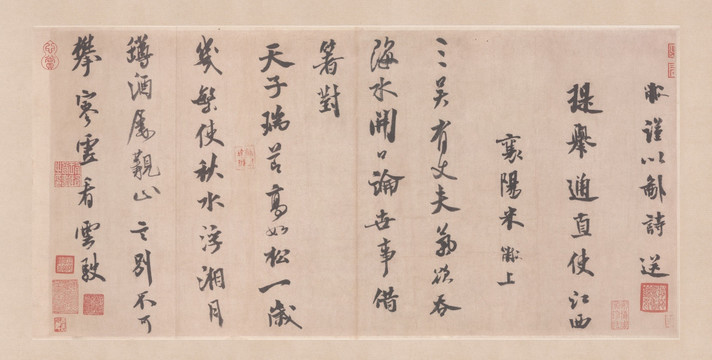 黻謹以鄙詩送
提舉通直使江西
襄陽米黻上
三吳有丈夫氣欲吞
海水開口論世事借
箸對
天子瑞節高如松一歲
幾繁使秋水浮湘月
罇酒屬觀山言別不可
攀寒雲看雲駛